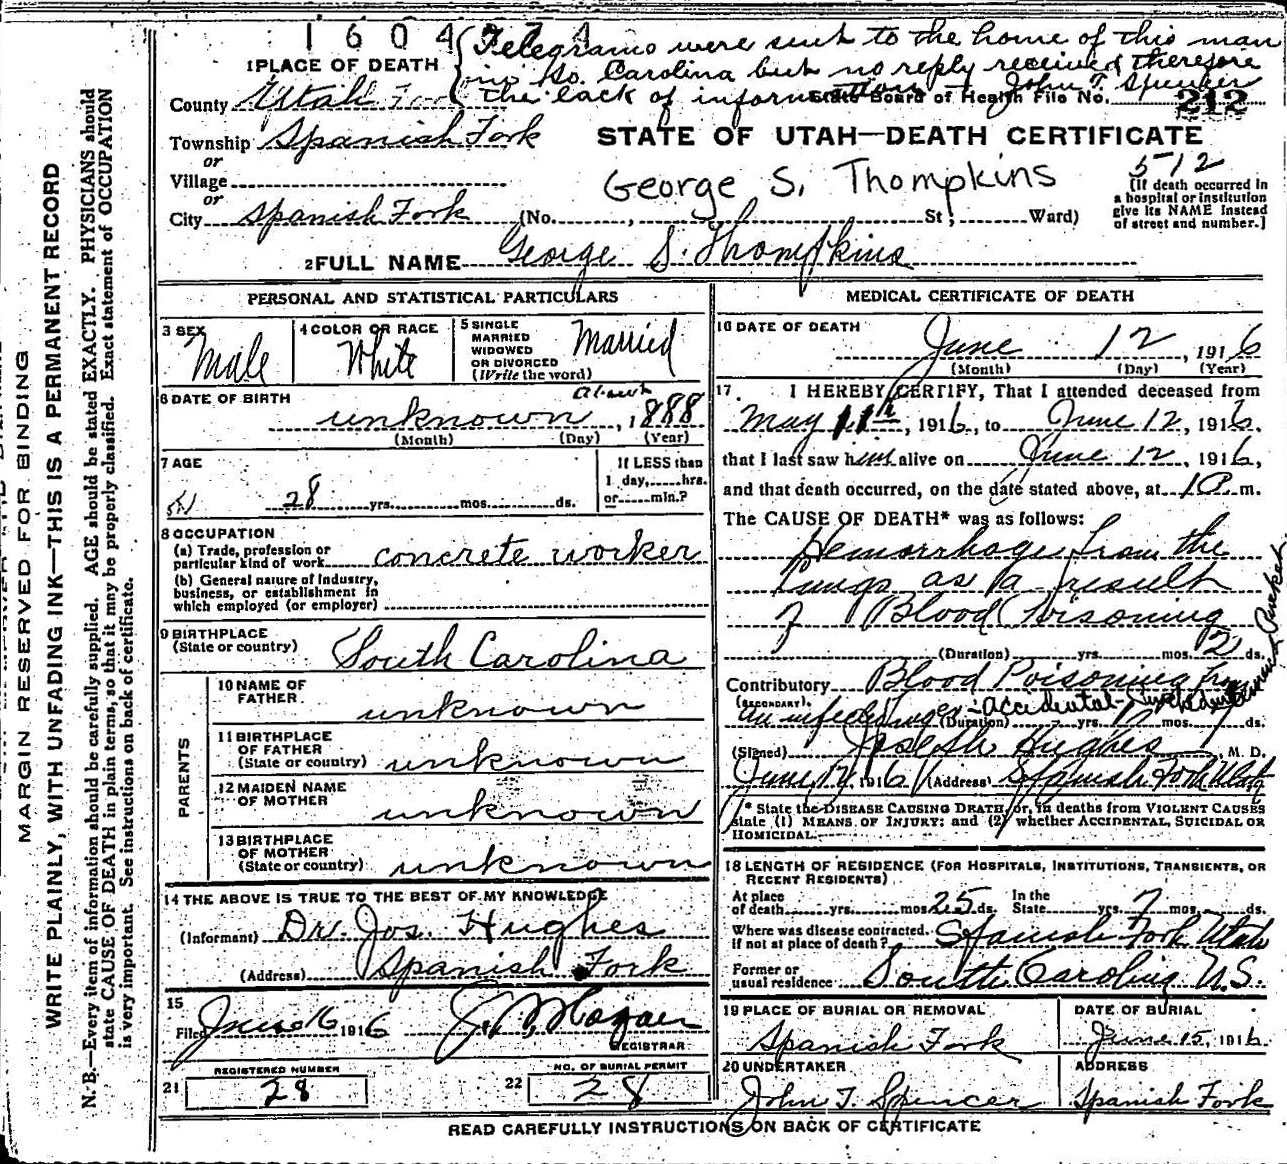 1 6 0 4
Telegrams were sent to the home of this man
in So. Carolina but no reply received therefore
the lack of information - John T. Spencer
1 PLACE OF DEATH
County Utah
State Board of Health File No. 212
Township Spanish Fork
or
Village
or
City Spanish Fork (No. , St ; Ward)
STATE OF UTAH—DEATH CERTIFICATE
George S. Thompkins
512
(If death occurred in
a hospital or institution
give its NAME instead
of street and number.]
2 FULL NAME George S. Thompkins
PERSONAL AND STATISTICAL PARTICULARS
3 SEX
Male
4 COLOR OR RACE
White
5 SINGLE
MARRIED
WIDOWED
OR DIVORCED
(Write the word)
Married
6 DATE OF BIRTH
unknown , about 1888
(Month) (Day) (Year)
7 AGE
28 yrs. mos. ds.
If LESS than
1 day, hrs.
or min.?
8 OCCUPATION
(a) Trade, profession or
particular kind of work concrete worker
(b) General nature of Industry,
business, or establishment in
which employed (or employer)
9 BIRTHPLACE
(State or country) South Carolina
PARENTS
10 NAME OF
FATHER unknown
11 BIRTHPLACE
OF FATHER
(State or country) unknown
12 MAIDEN NAME
OF MOTHER unknown
13 BIRTHPLACE
OF MOTHER
(State or country) unknown
14 THE ABOVE IS TRUE TO THE BEST OF MY KNOWLEDGE
(Informant) Dr. Jos. Hughes
(Address) Spanish Fork
15
Filed June 16 1916
REGISTRAR
21 REGISTERED NUMBER
28
22 NO. OF BURIAL PERMIT
28
MEDICAL CERTIFICATE OF DEATH
16 DATE OF DEATH
June 12 , 1916
(Month) (Day) (Year)
17 I HEREBY CERTIFY, That I attended deceased from
May 11th , 1916, to June 12, 1916,
that I last saw him alive on June 12, 1916,
and that death occurred, on the date stated above, at 1 P. m.
The CAUSE OF DEATH* was as follows:
Hemorrhage from the
Lungs as a result
of Blood Poisoning
(Duration) yrs. mos. 2 ds.
Contributory Blood Poisoning from
(SECONDARY)
an infected finger - accidental -
(Duration) yrs. mos. ds.
(Signed) Joseph Hughes , M. D.
June 14 1916 (Address) Spanish Fork Utah
* State the DISEASE CAUSING DEATH, or, in deaths from VIOLENT CAUSES
state (1) MEANS OF INJURY; and (2) whether ACCIDENTAL, SUICIDAL OR
HOMICIDAL.
18 LENGTH OF RESIDENCE (FOR HOSPITALS, INSTITUTIONS, TRANSIENTS, OR
RECENT RESIDENTS)
At place
of death yrs. mos. 25 ds.
In the
State yrs. 7 mos. ds.
Where was disease contracted,
if not at place of death? Spanish Fork Utah
Former or
usual residence South Carolina U.S.
19 PLACE OF BURIAL OR REMOVAL
Spanish Fork
DATE OF BURIAL
June 15, 1916
20 UNDERTAKER
John T. Spencer
ADDRESS
Spanish Fork
READ CAREFULLY INSTRUCTIONS ON BACK OF CERTIFICATE
MARGIN RESERVED FOR BINDING
WRITE PLAINLY, WITH UNFADING INK—THIS IS A PERMANENT RECORD
N. B.—Every item of information should be carefully supplied. AGE should be stated EXACTLY. PHYSICIANS should
state CAUSE OF DEATH in plain terms, so that it may be properly classified. Exact statement of OCCUPATION
is very important. See instructions on back of certificate.